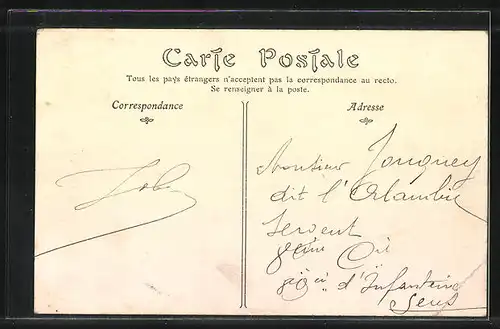 Carte Postale
Tous les pays étrangers n'acceptent pas la correspondance au recto.
Se renseigner à la poste.
Correspondance
Adresse
Monsieur Jouguey
dit l'Alambic
Sergent
8ème Cie
d'Infanterie
Sens